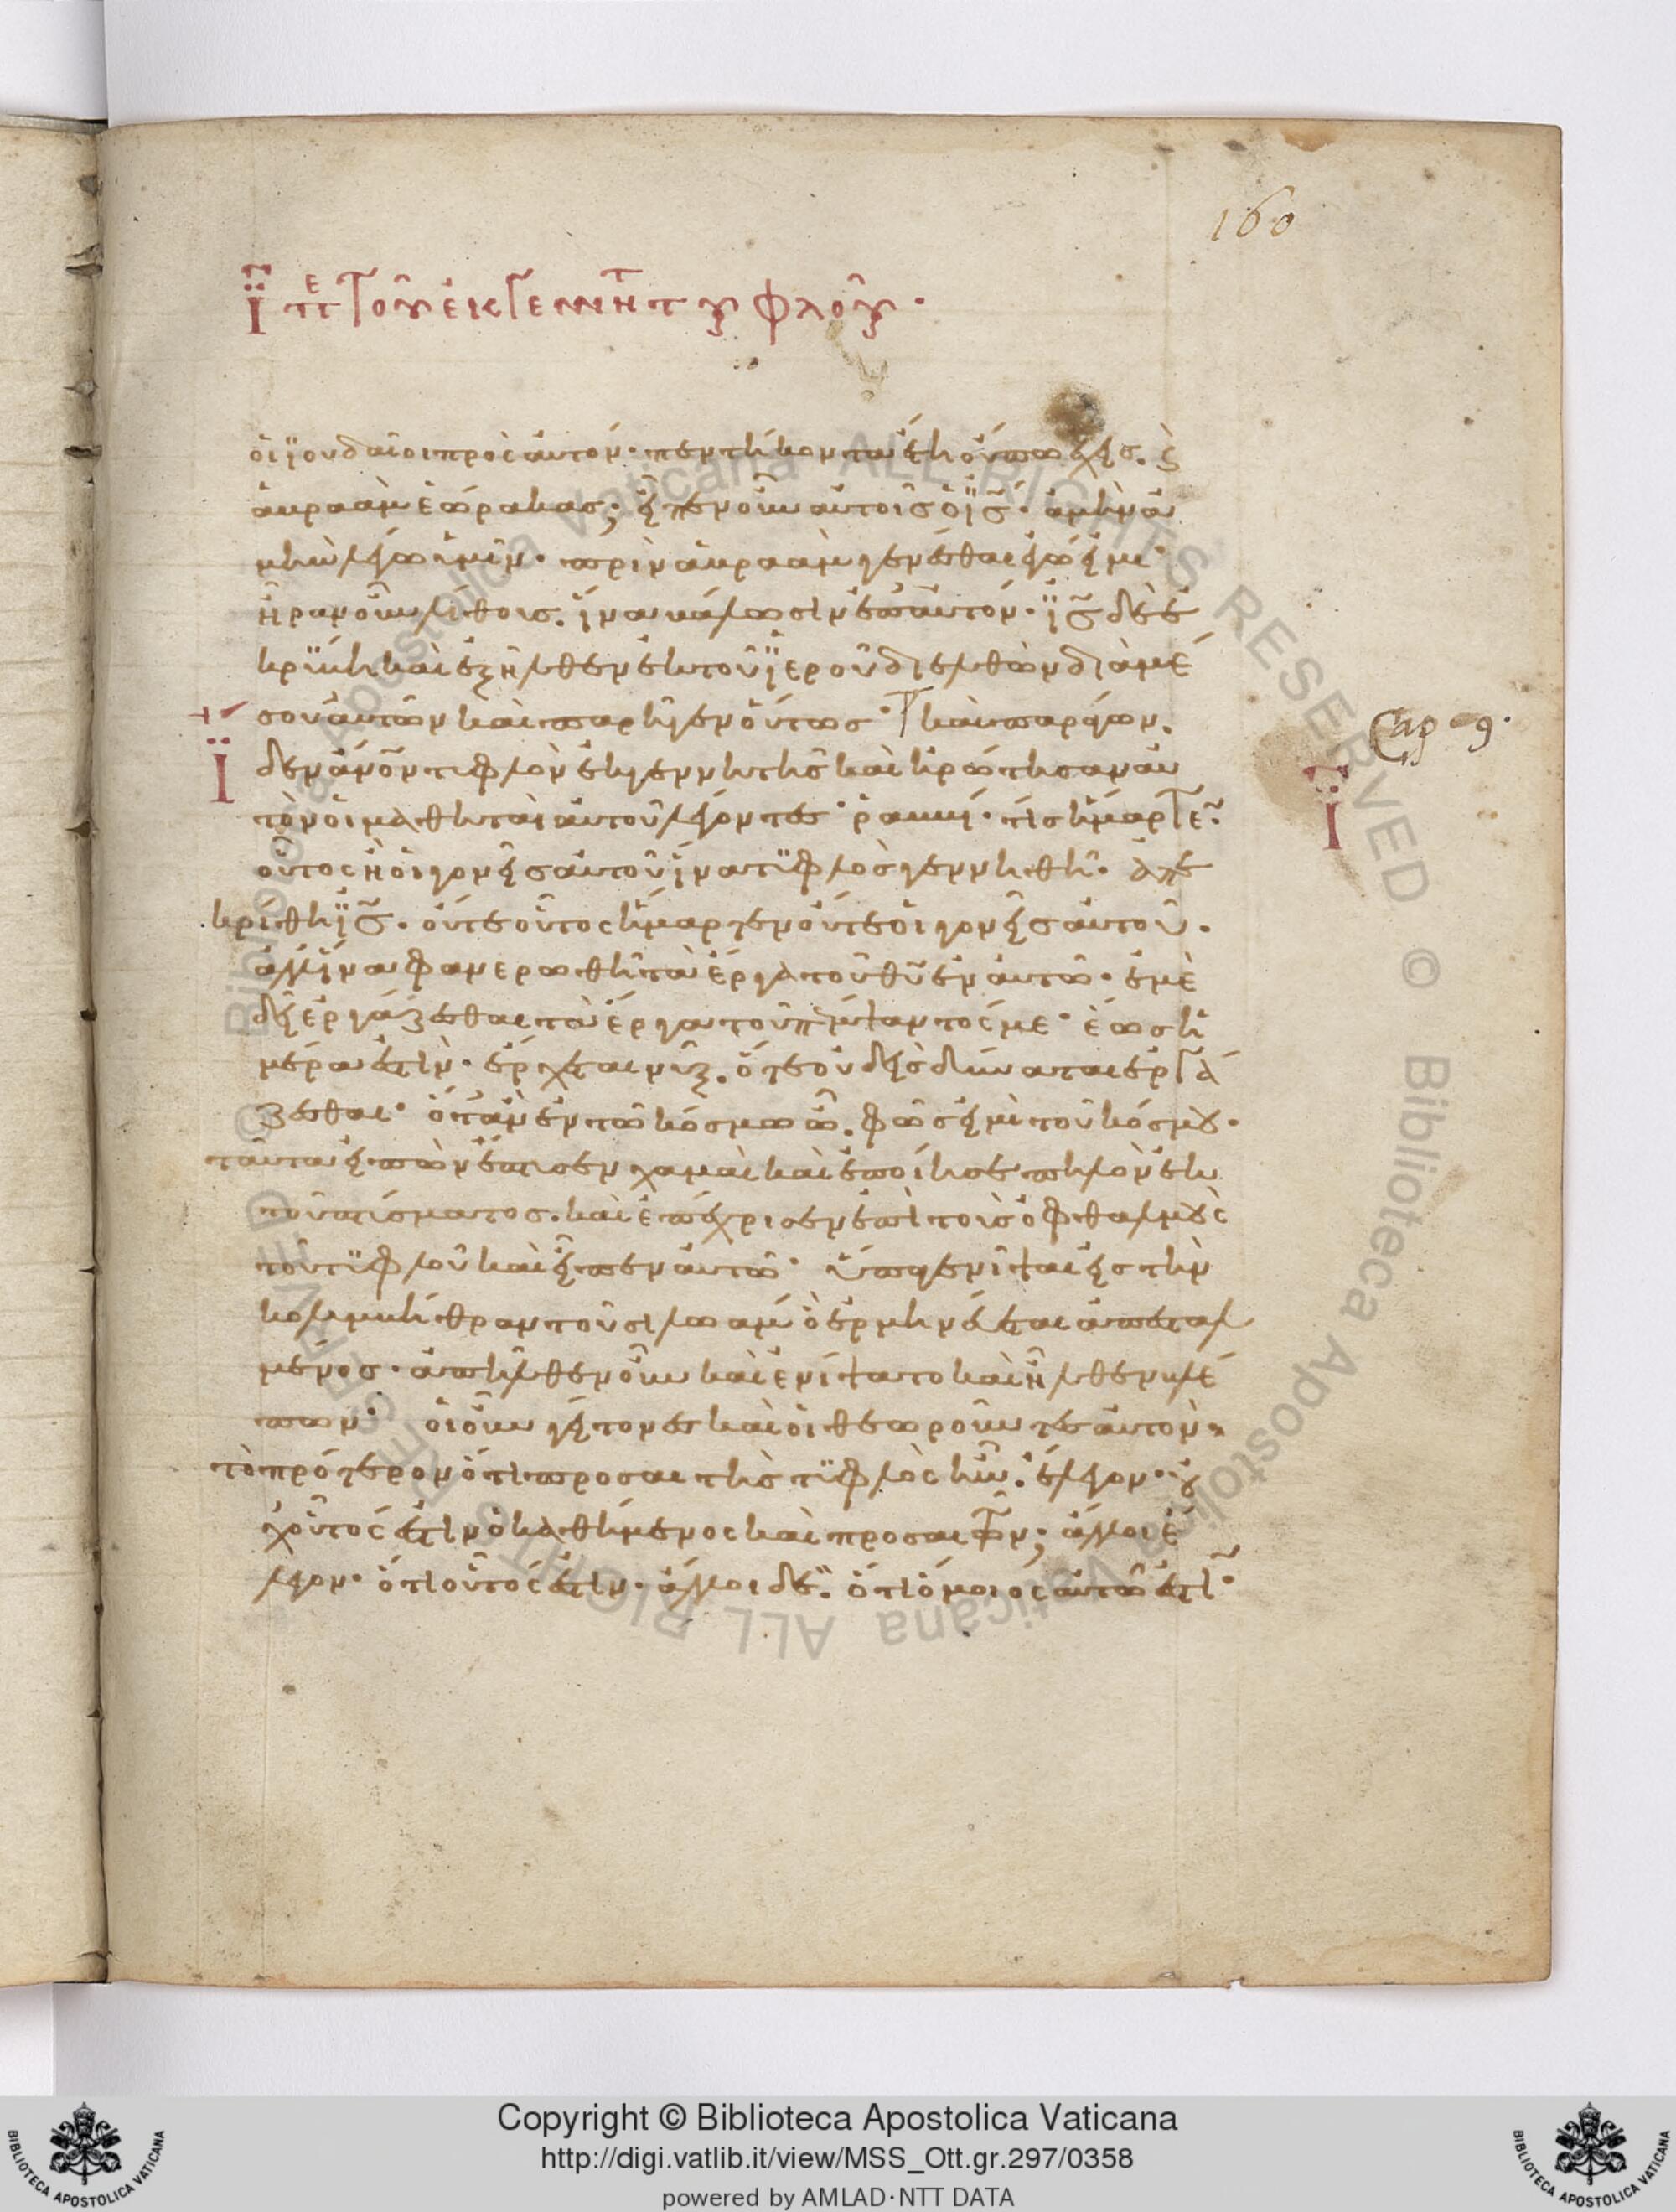 160
ῑ πε τοῦ ἐκ γεννητ τυφλοῦ·
οἱ ϊουδαῖοι πρὸς αὐτόν· πεντήκοντα ἔτη οὔπω ἔχεις. ϗ
ἀβραὰμ ἑώρακας; εἶπεν οὖν αὐτοῖς ὁ ϊς· ἀμὴν ἀ
μὴν λέγω ὑμῖν· πρὶν ἀβραὰμ γενέσθαι ἐγώ εἰμι·
ἦραν οὖν λίθους. ἵνα βάλωσιν ἐπ αὐτόν· ϊς δὲ ἐ
κρύβη καὶ ἐξῆλθεν ἐκ τοῦ ϊεροῦ διελθὼν διὰ μέ
σου αὐτῶν καὶ παρῆγεν οὕτως· καὶ παράγων.
ϊδεν ἄνον τυφλὸν ἐκ γεννητῆς καὶ ἠρώτησαν αὐ
Cap 9.
τὸν οἱ μαθηταὶ αὐτοῦ λέγοντες· ῥαββί· τίς ἥμαρτε.
ῑ
οὗτος ἢ οἱ γονεῖς αὐτοῦ ἵνα τυφλὸς γεννηθῇ· ἀπε
κρίθη ϊς· οὔτε οὗτος ἥμαρτεν οὔτε οἱ γονεῖς αὐτοῦ.
ἀλλ ἵνα φανερωθῇ τὰ ἔργα τοῦ θυ ἐν αὐτῶ· ἐμὲ
δεῖ ἐργάζεσθαι τὰ ἔργα τοῦ πέμψαντός με· ἕως ἡ
μέρα ἐστίν· ἔρχεται νὺξ. ὅτε οὐδεὶς δύναται ἐργά
ζεσθαι· ὅταν ἐν τῶ κόσμω ὦ. φῶς εἰμὶ τοῦ κόσμου·
ταῦτα εἰπὼν ἔπτυσεν χαμαὶ καὶ ἐποίησε πηλὸν ἐκ
τοῦ πτύσματος. καὶ ἐπέχρισεν ἐπὶ τοὺς ὀφθαλμοὺς
τοῦ τυφλοῦ καὶ εἶπεν αὐτῶ· ὕπαγε νίψαι εἰς τὴν
κολυμβήθραν τοῦ σιλωάμ ὃ ἑρμηνεύεται ἀπεσταλ
μένος· ἀπῆλθεν οὖν καὶ ἐνίψατο καὶ ἦλθεν βλέ
πων· οἱ οὖν γείτονες καὶ οἱ θεωροῦντες αὐτὸν
τὸ πρότερον ὅτι προσαίτης τυφλὸς ἦν. ἔλεγον· οὐ
χ οὗτός ἐστιν ὁ καθήμενος καὶ προσαιτῶν; ἄλλοι ἔ
λεγον· ὅτι οὗτός ἐστιν· ἄλλοι δὲ. ὅτι ὅμοιος αὐτῶ ἐστι·
Copyright © Biblioteca Apostolica Vaticana
http://digi.vatlib.it/view/MSS_Ott.gr.297/0358
powered by AMLAD·NTT DATA
BIBLIOTECA APOSTOLICA VATICANA
BIBLIOTECA APOSTOLICA VATICANA